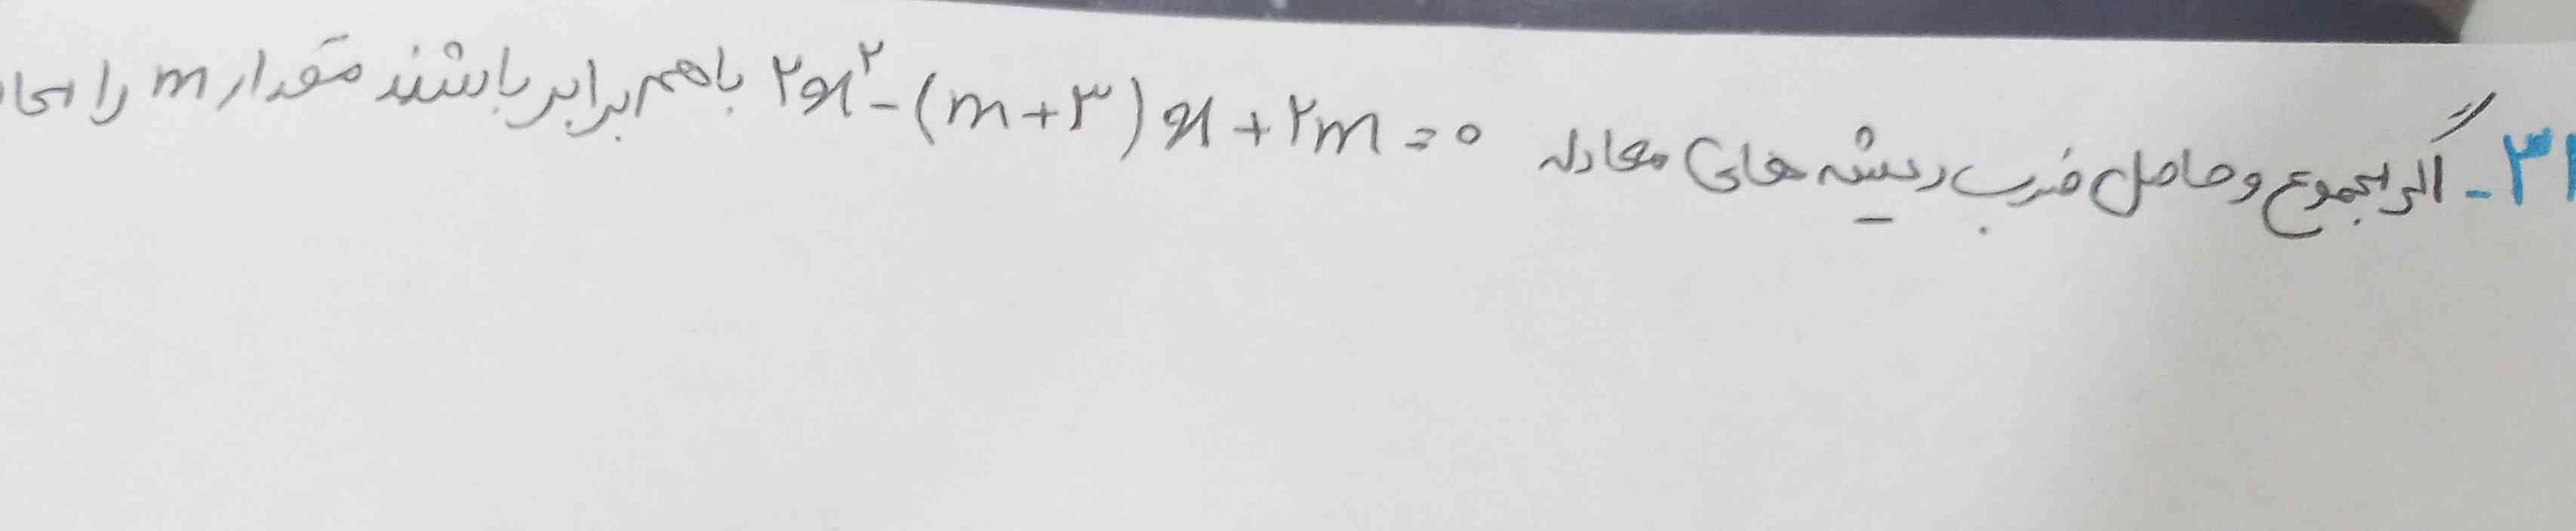 ۳۱- اگر مجموع و حاصل ضرب ریشه های معادله ۲x² - (m + ۳) x + ۲m = ۰ باهم برابر باشند مقدار m را